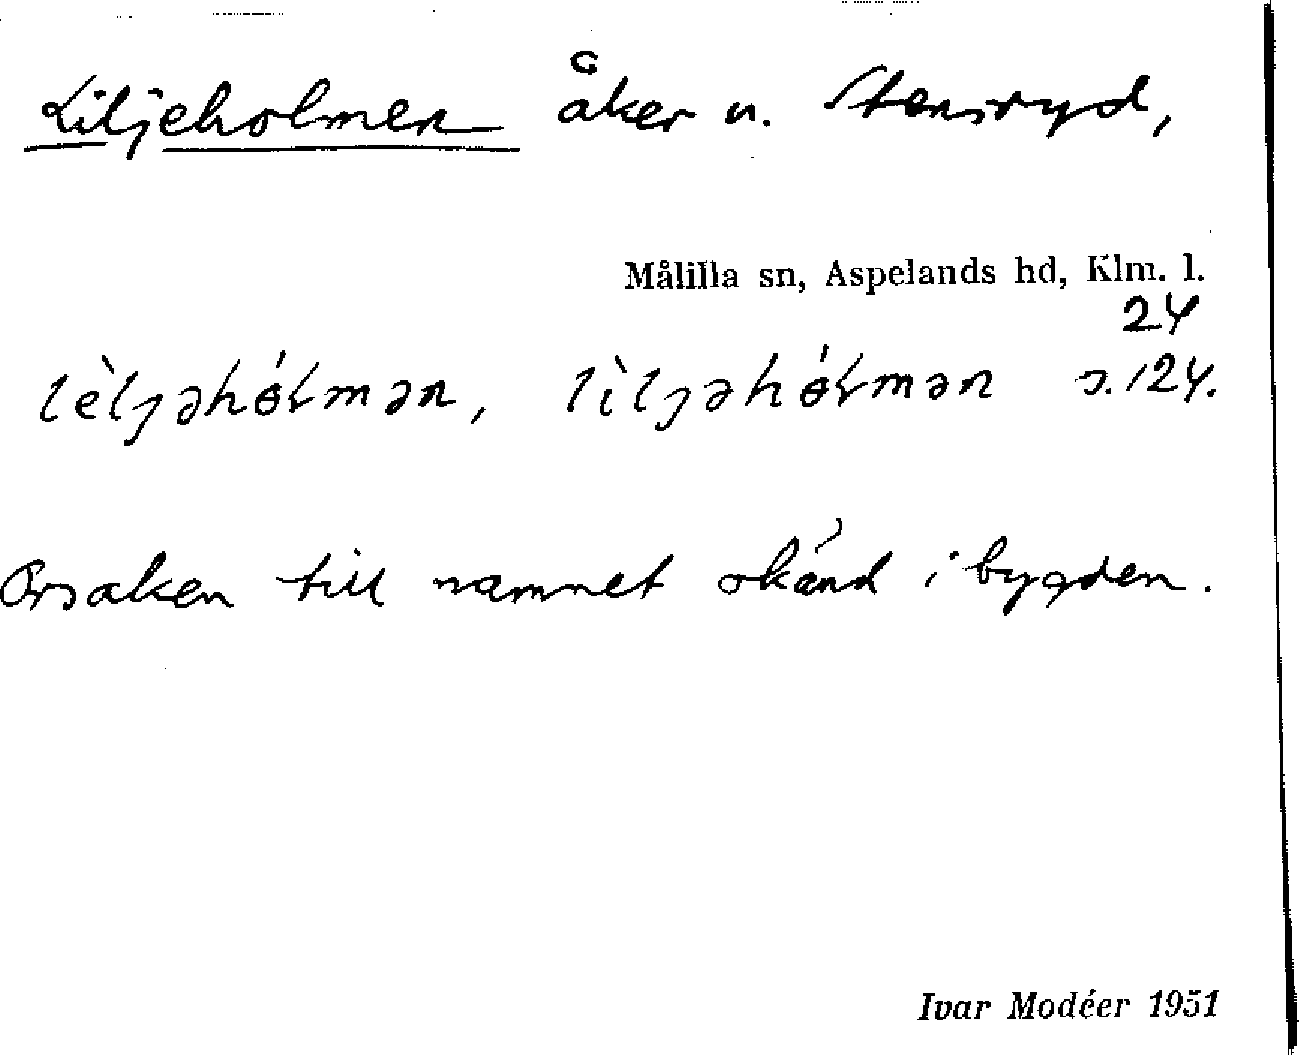 Liljeholmen åker u. Stensryd,
Målilla sn, Aspelands hd, Klm. l.
24
s. 124.
Orsaken till namnet okänd i bygden.
Ivar Modéer 1951